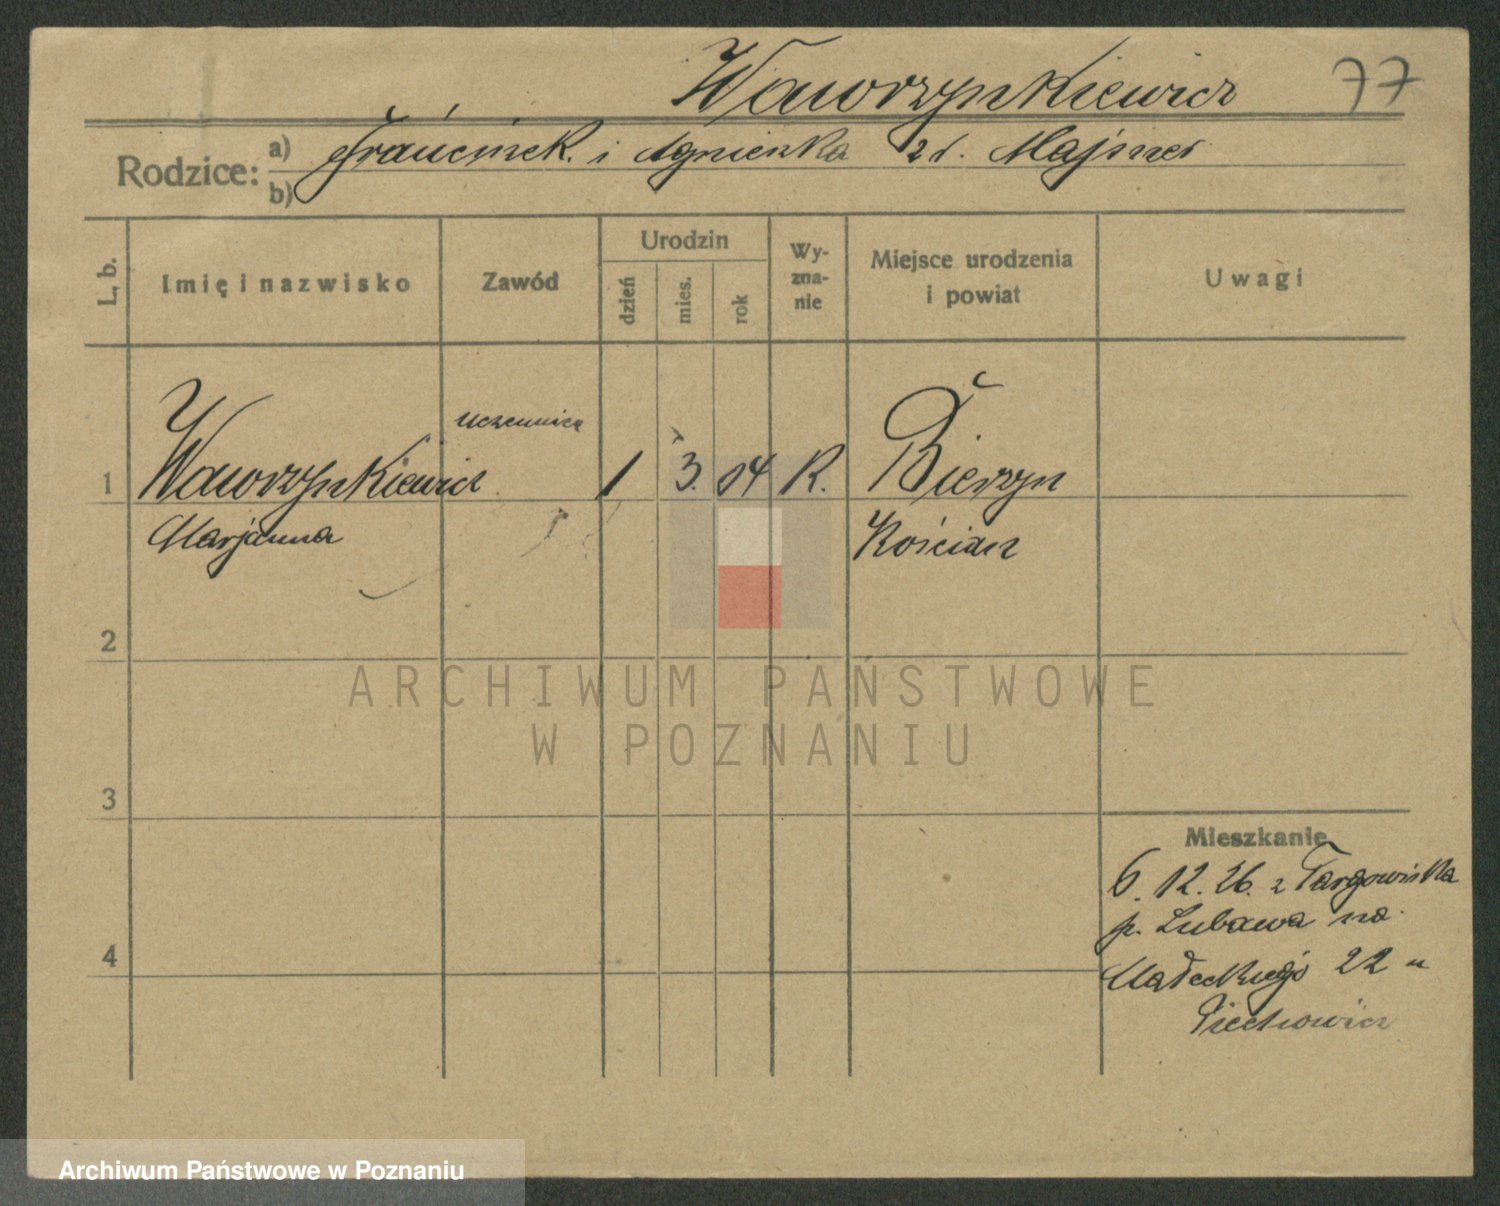 Wawrzynkiewicz 77
Rodzice: a) Franciszek i Agnieszka zd. Majsner
b)
L. b. Imię i nazwisko Zawód Urodzin Wy-zna-nie Miejsce urodzenia i powiat Uwagi
dzień mies. rok
uczennica
1 Wawrzynkiewicz 1 3. 04 R. Bierzyn
Marjanna Kościan
2
ARCHIWUM PAŃSTWOWE
W POZNANIU
3
Mieszkanie
6. 12. 26. z Targowiska
p. Lubawa na
4 Małeckiego 22 u
Piechowicz
Archiwum Państwowe w Poznaniu